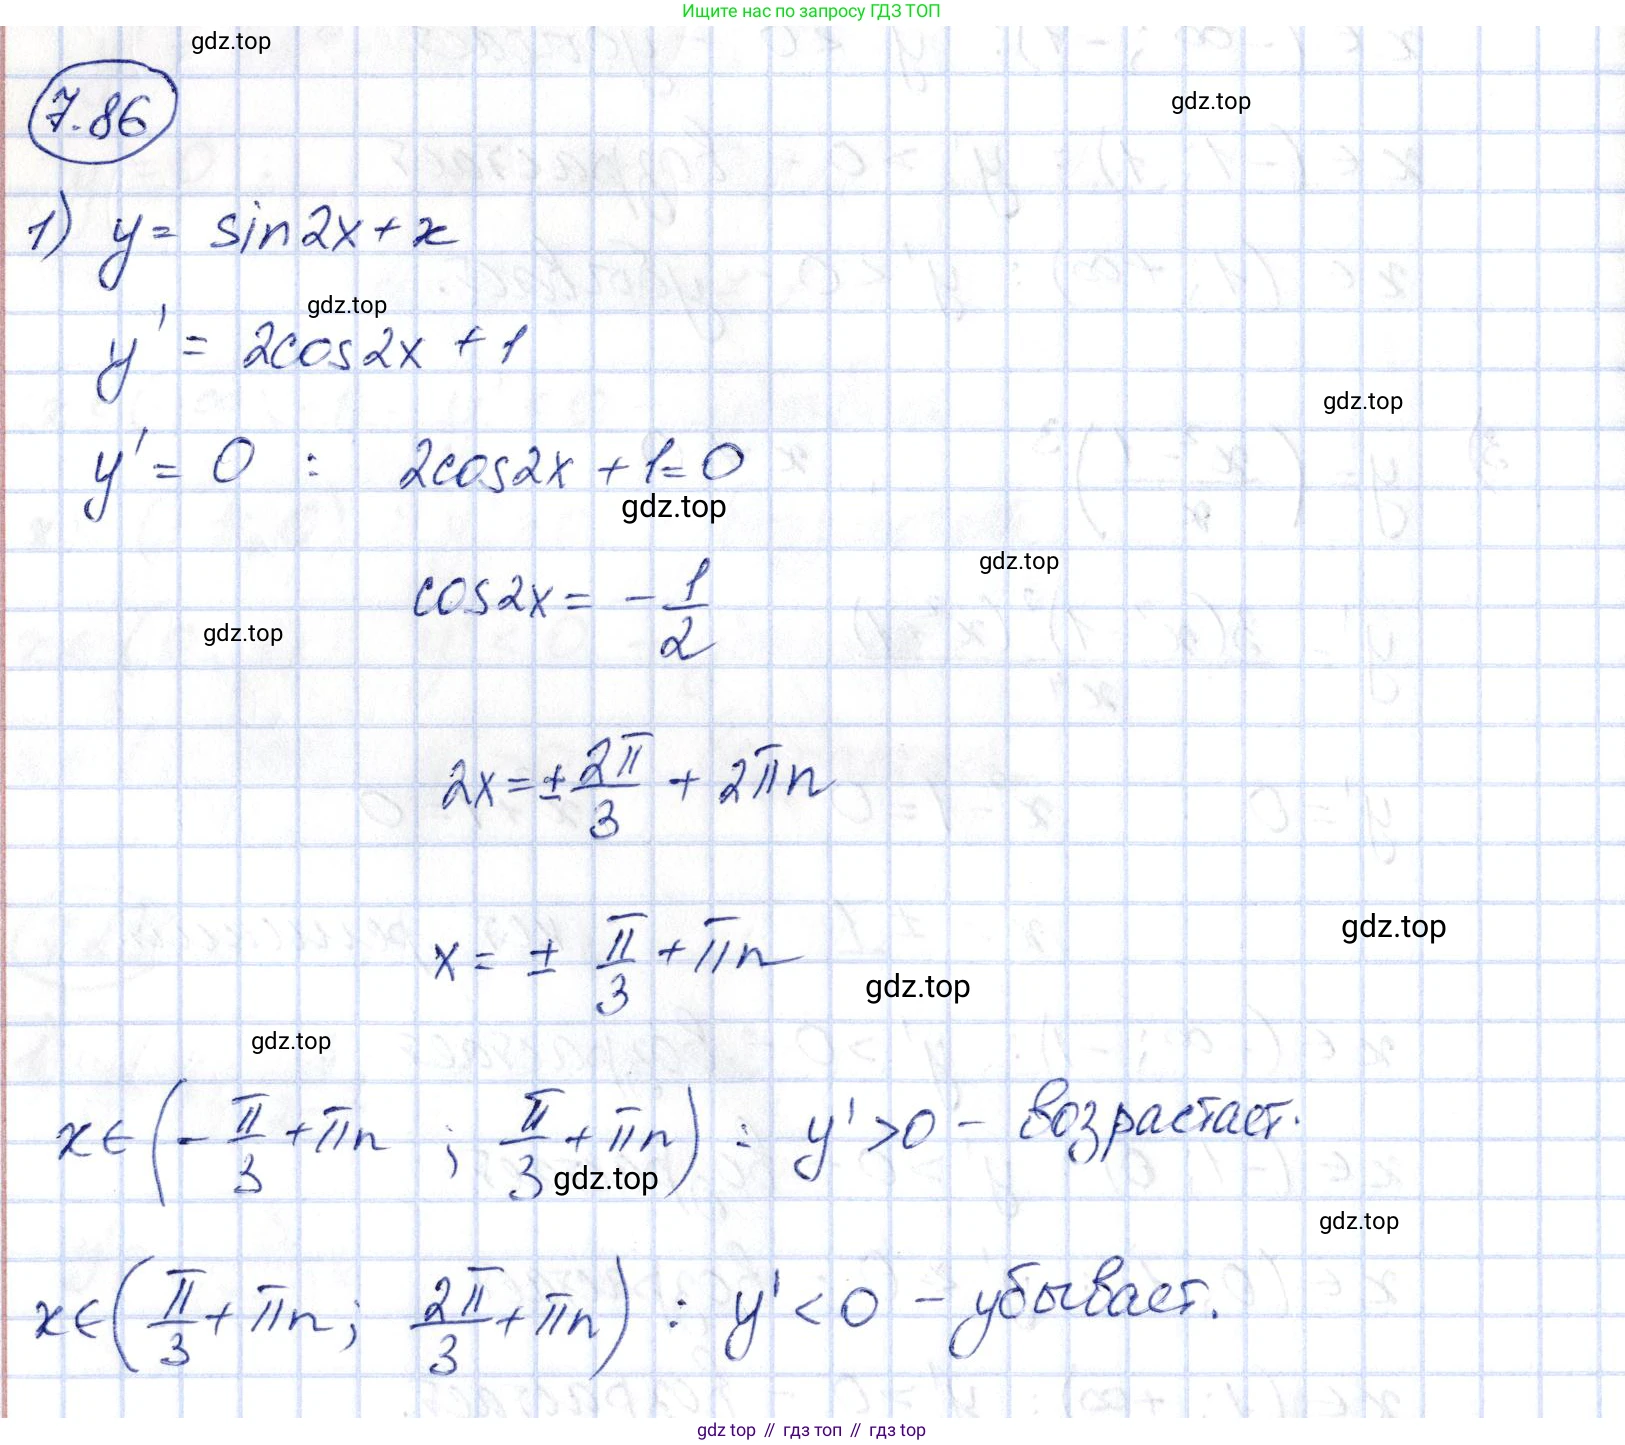 Ищите нас по запросу ГДЗ ТОП
gdz.top
gdz.top
7.86
1) y = sin2x + x
gdz.top
y' = 2cos2x + 1
gdz.top
y' = 0 : 2cos2x + 1 = 0
gdz.top
gdz.top
cos2x = - 1/2
gdz.top
2x = ± 2π/3 + 2πn
gdz.top
x = ± π/3 + πn
gdz.top
gdz.top
x ∈ (- π/3 + πn ; π/3 + πn) : y' > 0 - возрастает.
gdz.top
gdz.top
x ∈ (π/3 + πn ; 2π/3 + πn) : y' < 0 - убывает.
gdz top // гдз топ // гдз top